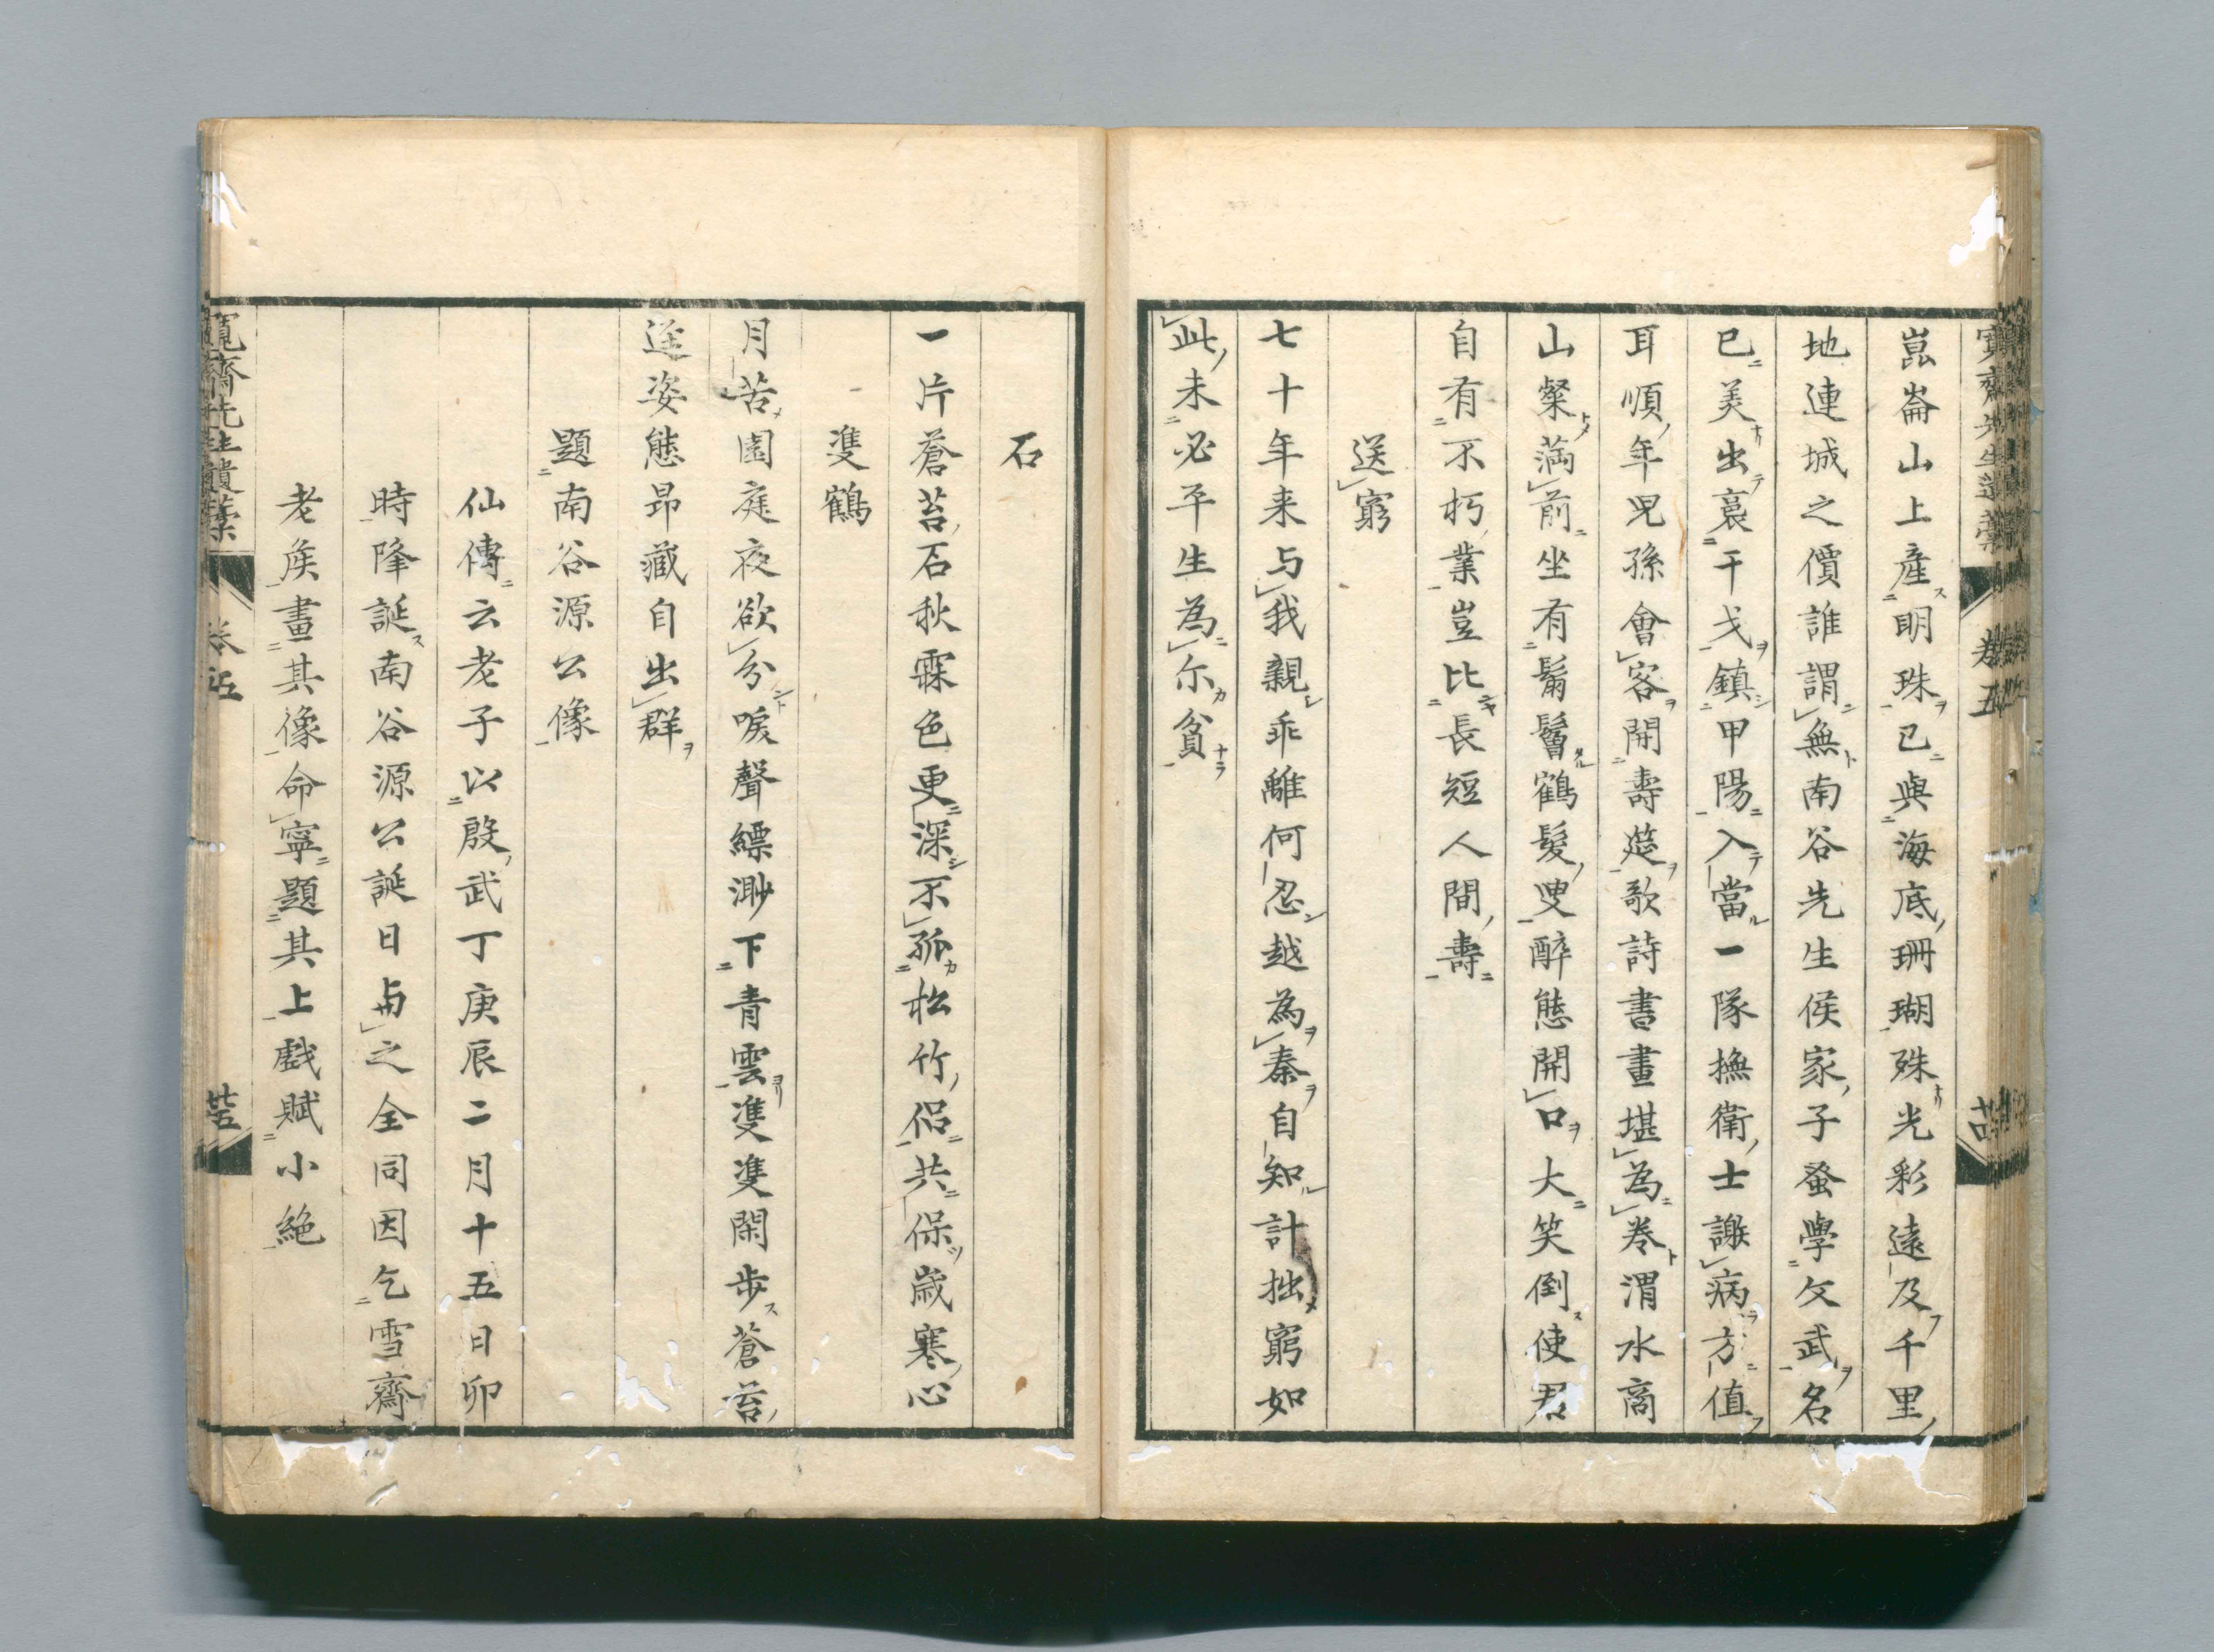 崑崙山上產明珠已與海底珊瑚殊光彩遠及千里
地連城之價誰謂無南谷先生侯家子蚤學文武名
已美出裏干戈鎮甲陽入當一隊撫衛士謝病方值
耳順年兒孫會客開壽筵歌詩書畫堪為卷渭水商
山粲満前坐有鬅鬙鶴髮叟醉態開口大笑倒使君
自有不朽業豈比長短人間壽
送窮
七十年来与我親乖離何忍越為秦自知計拙窮如
此未必平生為尓貧
卷五
石
一片蒼苔石秋霖色更深不孤松竹侶共保歳寒心
隻鶴
月苦園庭夜欲分唳聲縹渺下青雲隻隻閑歩蒼苔
逕姿態昂藏自出群
題南谷源公像
仙傳云老子以殷武丁庚辰二月十五日卯
時降誕南谷源公誕日与之全同因乞雪齋
老矦畫其像命寧題其上戲賦小絶
寬齋先生遺稾 卷五 廿五